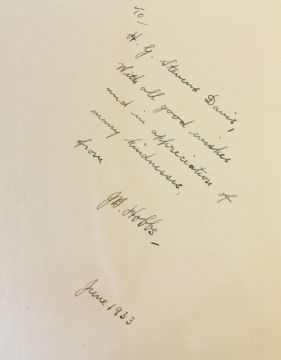 To/
H. G. Stevens Davis,
With all good wishes
and in appreciation of
many kindnesses,
from
J.B. Hobbs
June 1933